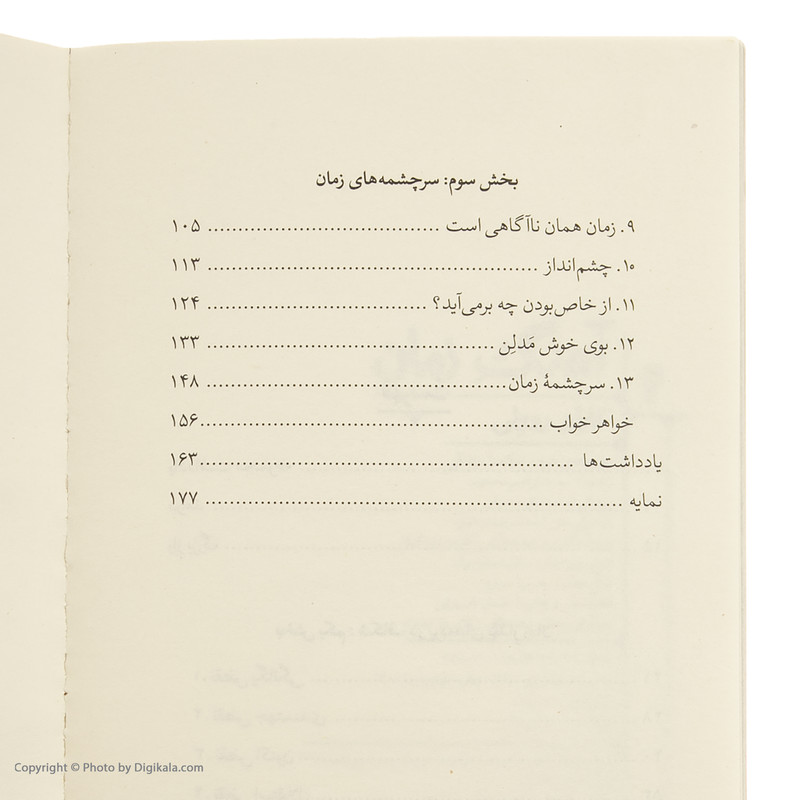 بخش سوم: سرچشمه‌های زمان
۹. زمان همان ناآگاهی است ........................................ ۱۰۵
۱۰. چشم‌انداز ........................................................ ۱۱۳
۱۱. از خاص‌بودن چه برمی‌آید؟ ..................................... ۱۲۴
۱۲. بوی خوش مَدلِن ................................................ ۱۳۳
۱۳. سرچشمهٔ زمان .................................................. ۱۴۸
خواهر خواب ......................................................... ۱۵۶
یادداشت‌ها .............................................................. ۱۶۳
نمایه ..................................................................... ۱۷۷
Copyright © Photo by Digikala.com